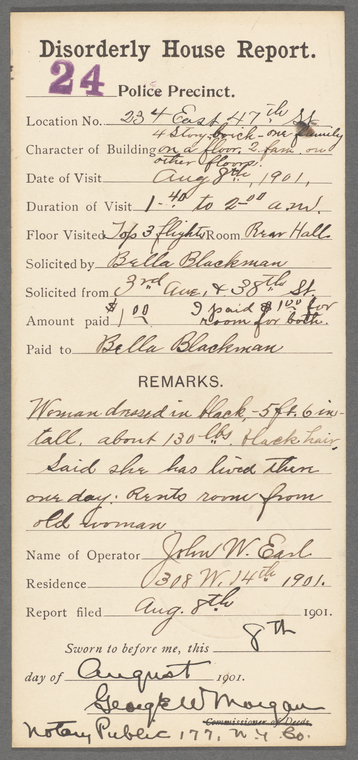 Disorderly House Report.
24 Police Precinct.
Location No. 234 East 47th St
4 Story brick - one family
Character of Building on a floor, 2 fam. on
other floors.
Date of Visit Aug 8th, 1901,
Duration of Visit 1-40 to 2-00 a.m.
Floor Visited Top 3 flights Room Rear Hall
Solicited by Bella Blackman
Solicited from 3rd Ave, & 38th St.
Amount paid $1.00 I paid $1.00 for
room for both.
Paid to Bella Blackman
REMARKS.
Woman dressed in black, - 5 ft. 6 in -
tall, about 130 lbs, black hair,
Said she has lived there
one day. Rents room from
old woman
Name of Operator John W. Earl
Residence 308 W. 14th 1901.
Report filed Aug. 8th 1901.
Sworn to before me, this 8th
day of August 1901.
George W Morgan
Commissioner of Deeds.
Notary Public 177, N.Y. Co.